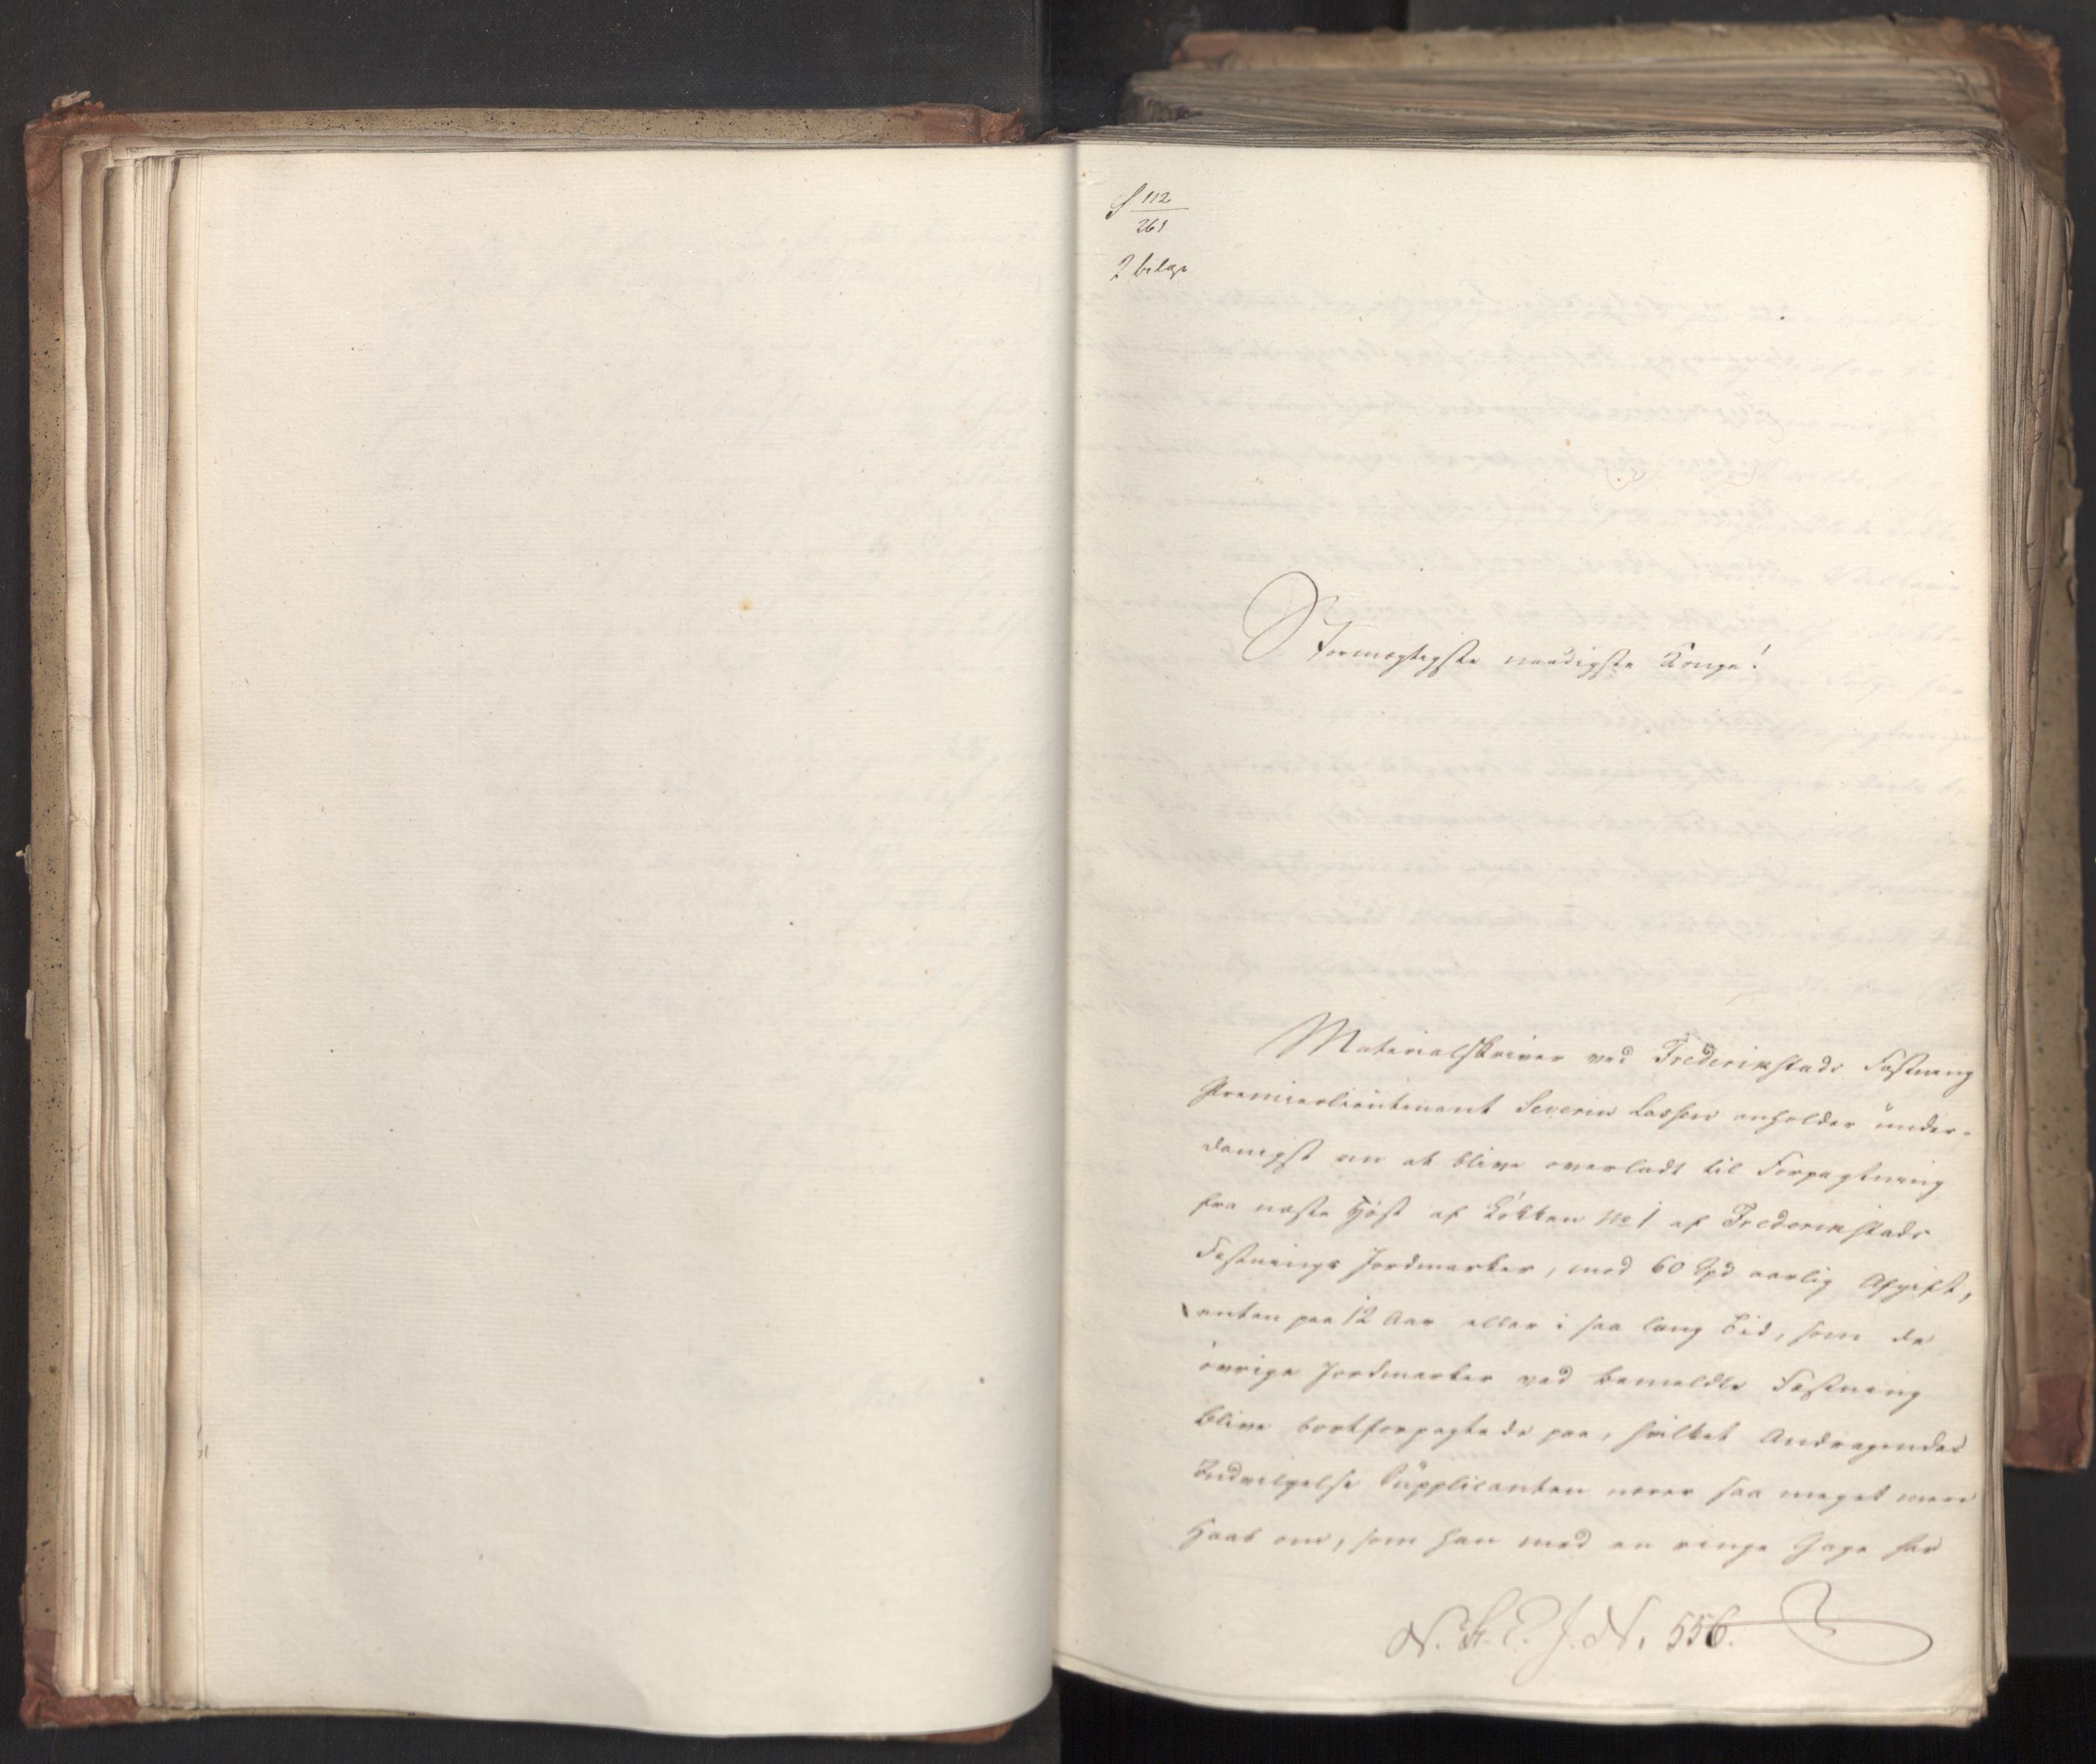 112
261
2 bilage
Stormægtigste naadigste Konge!
Materialskriver ved Frederikstads Fæstning
Premierlieutenant Severin Lassen anholder under-
danigst om at blive overladt til Forpagtning
fra næste Høst af Løkken No 1 af Frederikstads
Fæstnings Jordmarker, mod 60 Spd aarlig Afgift,
enten paa 12 Aar eller i saa lang Tid, som de
øvrige Jordmarker ved bemeldte Fæstning
blive bortforpagtede paa, hvilket Andragendes
Indvilgelse Supplicanten nærer saa meget mere
Haab om, som han med en ringe Gage har
N. St. E. J. N. 556.